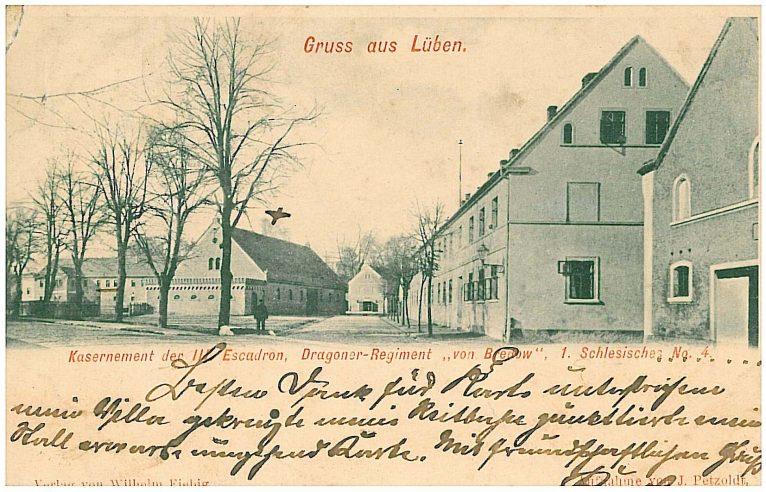 Gruss aus Lüben.
Kasernement der III Escadron, Dragoner-Regiment „von Bredow“, 1. Schlesisches No. 4.
Besten Dank für Karte unterstrichene
meine Villa gekreuzte meine
Stall erwarte umgehend Karte. Mit freundschaftlichen Gruß
Verlag von Wilhelm Fiebig
Aufnahme von J. Petzoldt,